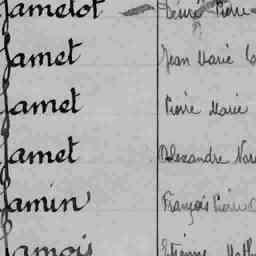 Jamelot Désiré Pierre
Jamet Jean Marie
Jamet Pierre Marie
Jamet Alexandre
Jamin François Pierre
Jamois Etienne